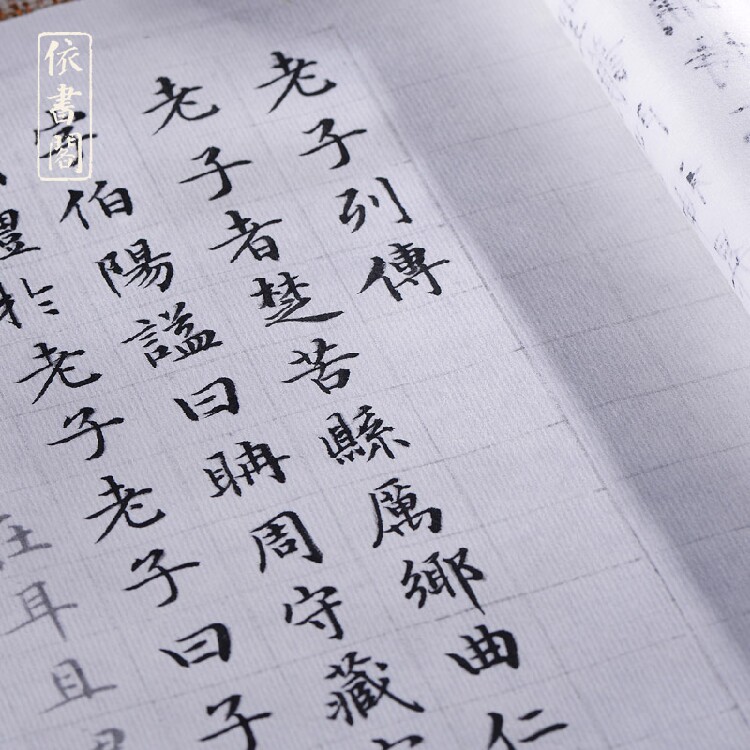 依書閣
老子列傳
老子者楚苦縣厲鄉曲仁
字伯陽謚曰耼周守藏
禮於老子老子曰子
在耳且